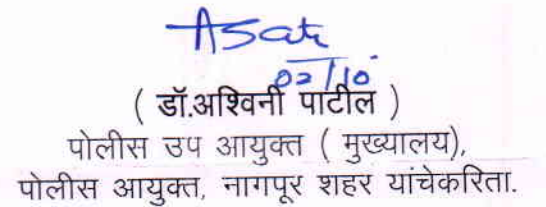 02/10
( डॉ.अश्विनी पाटील )
पोलीस उप आयुक्त ( मुख्यालय),
पोलीस आयुक्त, नागपूर शहर यांचेकरिता.